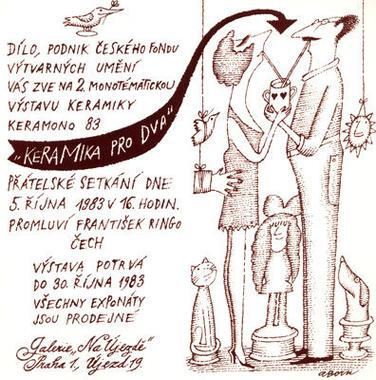 DÍLO, PODNIK ČESKÉHO FONDU
VÝTVARNÝCH UMĚNÍ
VÁS ZVE NA 2. MONOTÉMATICKOU
VÝSTAVU KERAMIKY
KERAMONO 83
„KERAMIKA PRO DVA“
PŘÁTELSKÉ SETKÁNÍ DNE
5. ŘÍJNA 1983 V 16. HODIN.
PROMLUVÍ FRANTIŠEK RINGO
ČECH
VÝSTAVA POTRVÁ
DO 30. ŘÍJNA 1983
VŠECHNY EXPONÁTY
JSOU PRODEJNÉ
Galerie „Na Újezdě“
Praha 1, Újezd 19.
ABORN